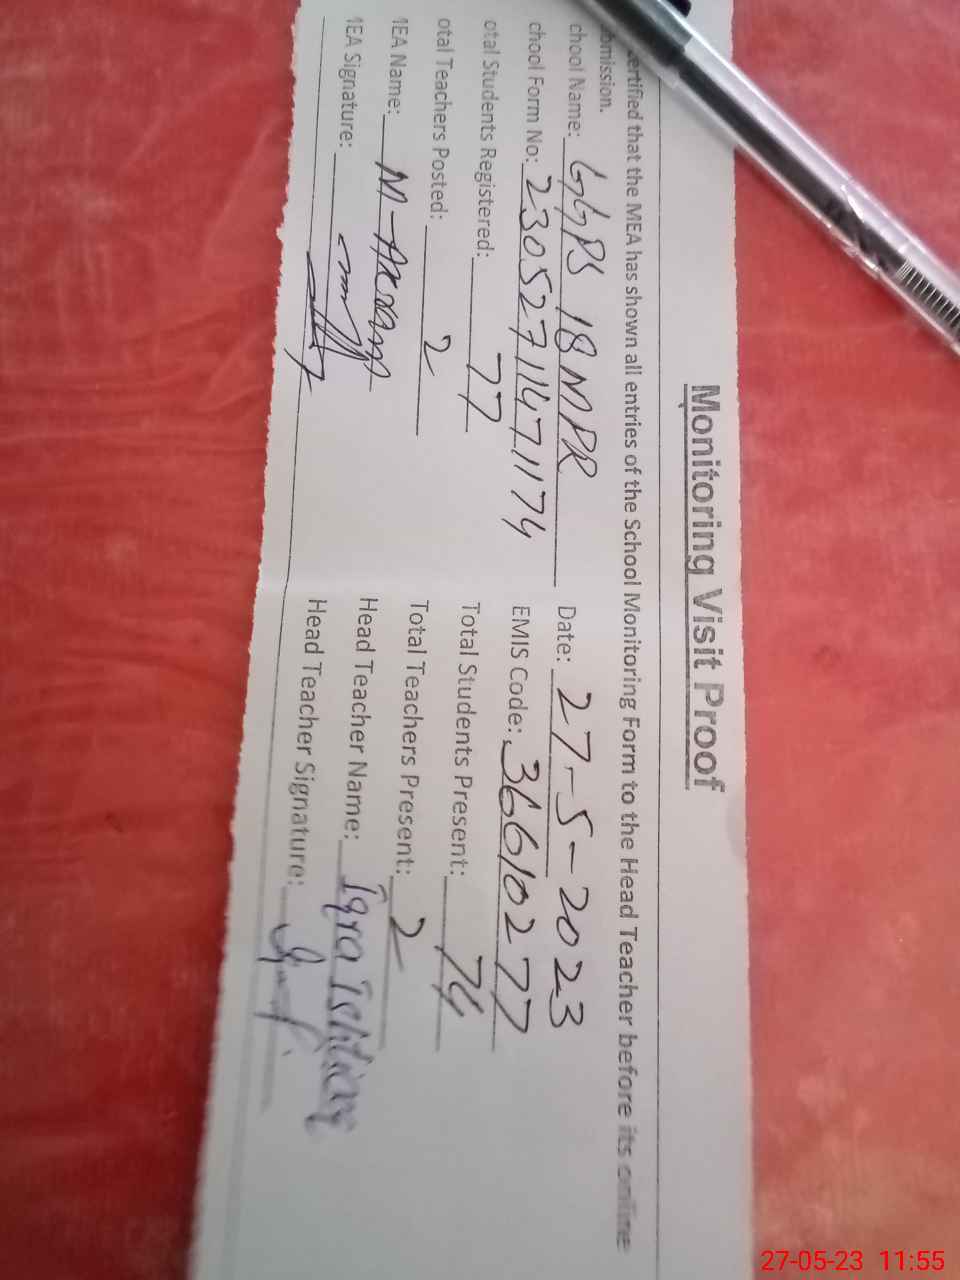 Monitoring Visit Proof
certified that the MEA has shown all entries of the School Monitoring Form to the Head Teacher before its online
omission.
chool Name: GGPS 18 MPR Date: 27-5-2023
chool Form No: 23052711471174 EMIS Code: 36610277
otal Students Registered: 77 Total Students Present: 74
otal Teachers Posted: 2 Total Teachers Present: 2
MEA Name: M-Akram Head Teacher Name: Iqra Ishtiaq
MEA Signature: Head Teacher Signature:
27-05-23 11:55